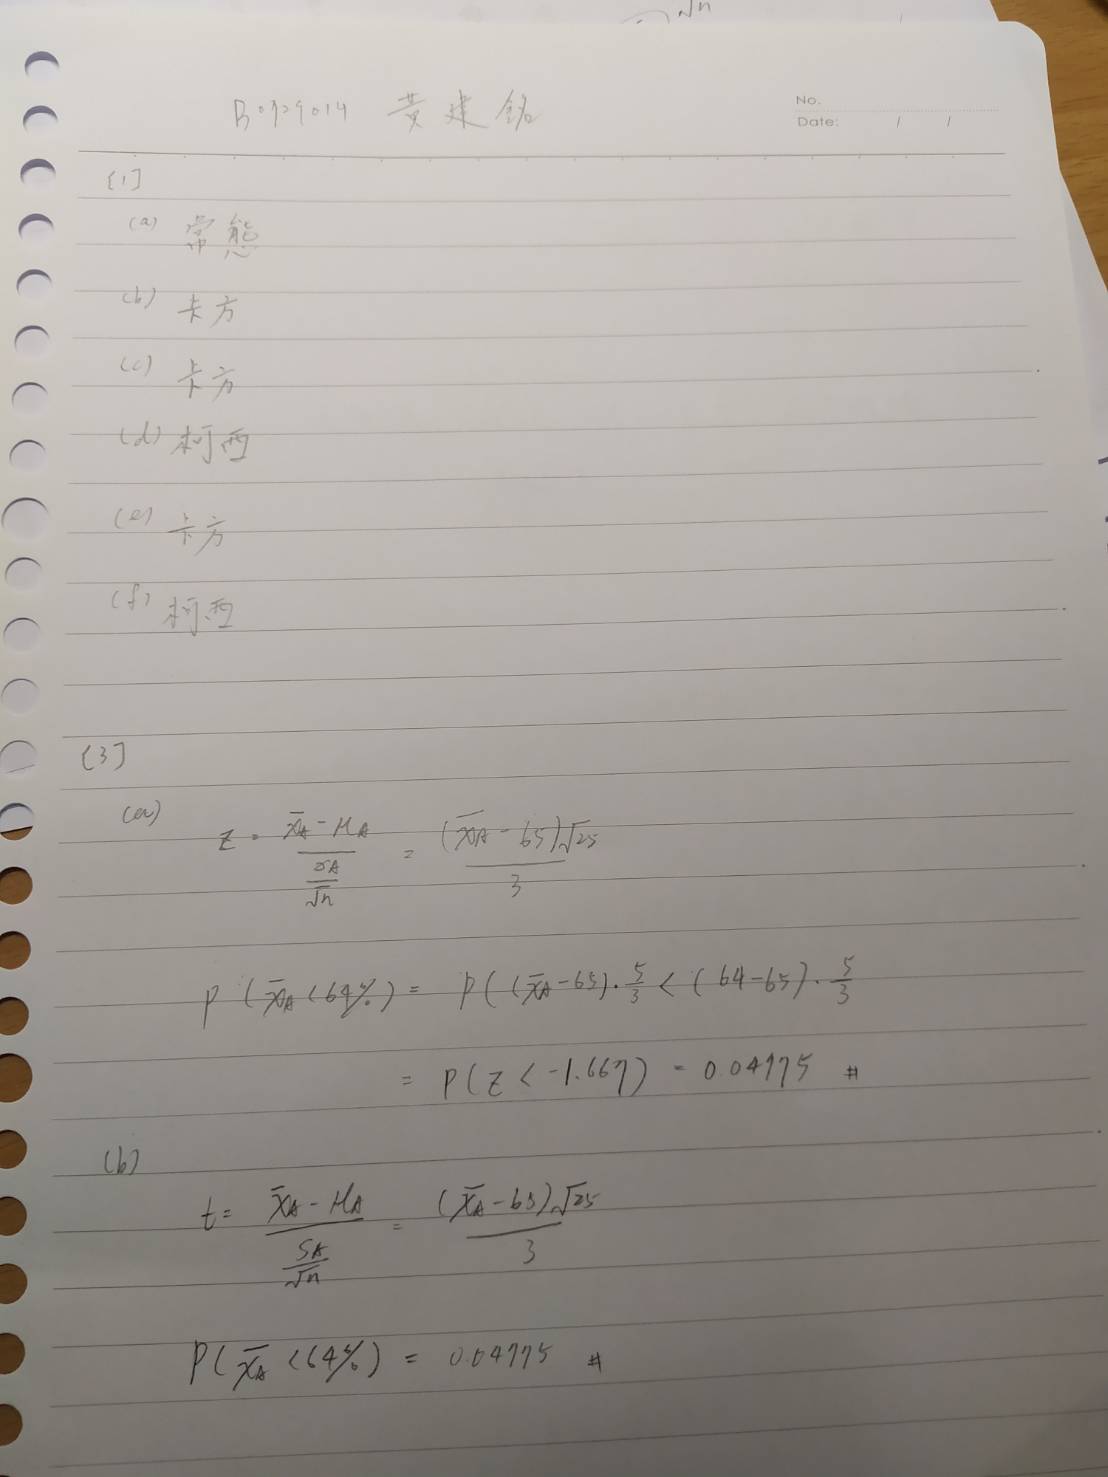 黃建銘
No.
Date: / /
[1]
(a) 常態
(b) 卡方
(c) 卡方
(d) 柯西
(e) 卡方
(f) 柯西
[3]
(a)
z = (x̄A - μA) / (σA/√n) = (x̄A - 65)√25 / 3
P(x̄A < 64%) = P((x̄A - 65)·5/3 < (64-65)·5/3
= P(z < -1.667) = 0.04775 #
(b)
t = (x̄A - μA) / (SA/√n) = (x̄A - 65)√25 / 3
P(x̄A < 64%) = 0.04775 #